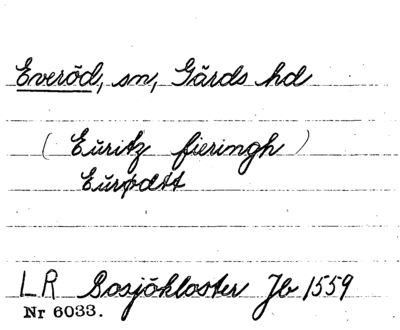 Everöd, sn, Gärds hd
(Euritz fieringh)
Eurødtt
LR Bosjökloster Jb 1559
Nr 6033.